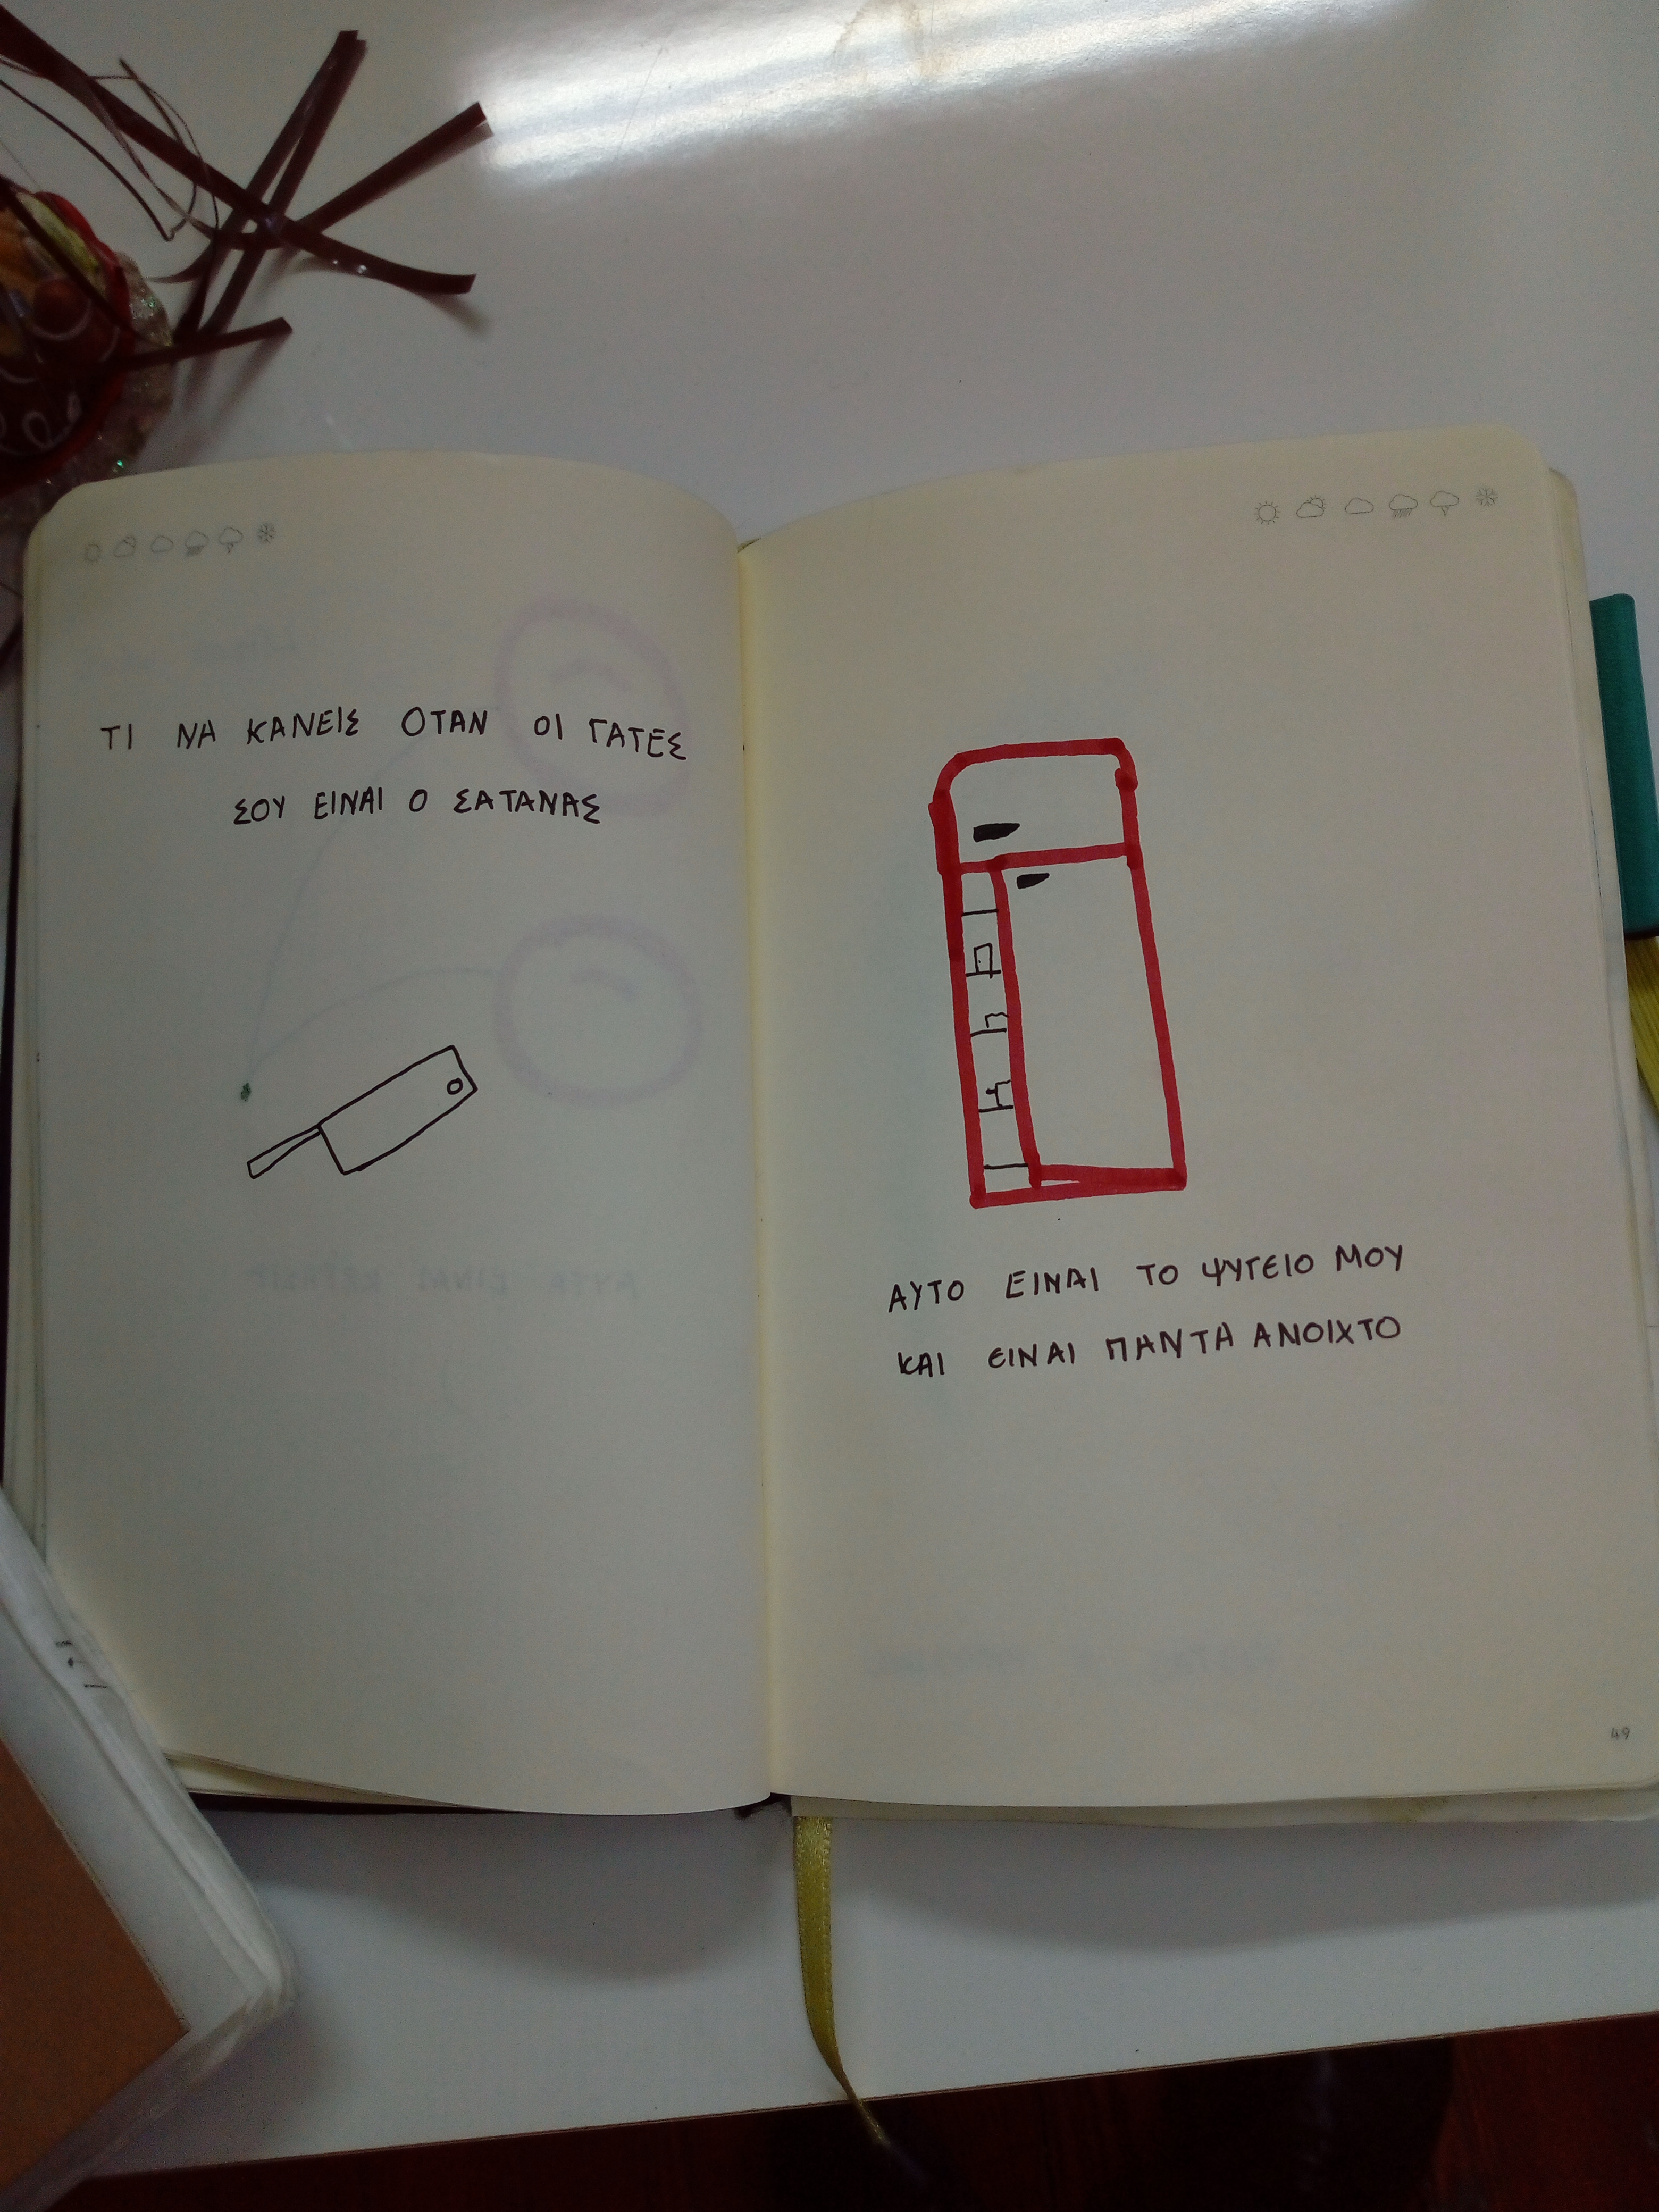 ΤΙ ΝΑ ΚΑΝΕΙΣ ΟΤΑΝ ΟΙ ΓΑΤΕΣ
ΣΟΥ ΕΙΝΑΙ Ο ΣΑΤΑΝΑΣ
ΑΥΤΟ ΕΙΝΑΙ ΤΟ ΨΥΓΕΙΟ ΜΟΥ
ΚΑΙ ΕΙΝΑΙ ΠΑΝΤΑ ΑΝΟΙΧΤΟ
49